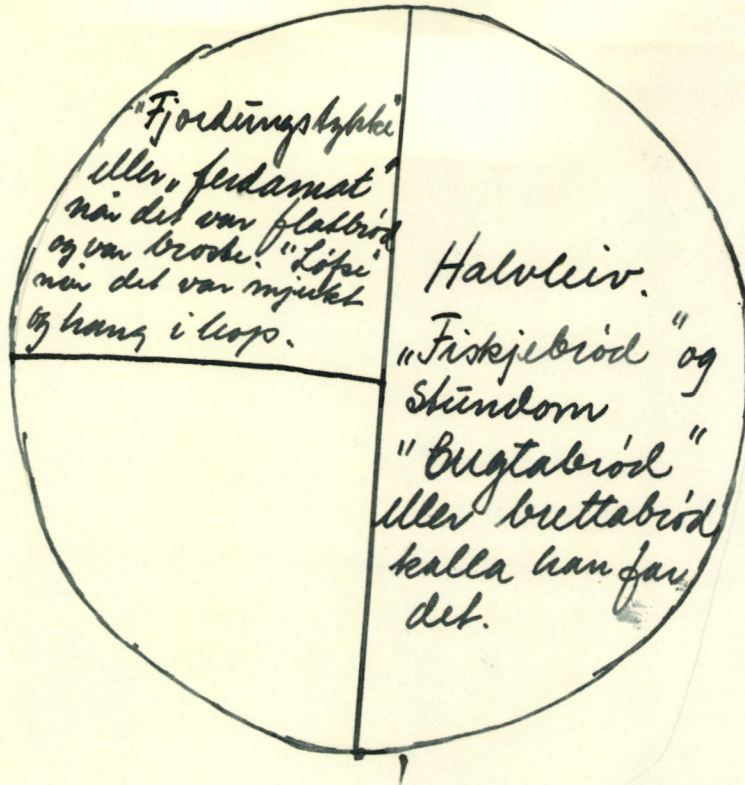 "Fjordungstykke"
eller "ferdamat"
når det var flatbrød
og var broste. "Løfse"
når det var mjukt
og hang i hop.
Halvleiv.
"Fiskjebrød" og
Stundom
"Bugtabrød"
eller brettabrød
kalla han far
det.